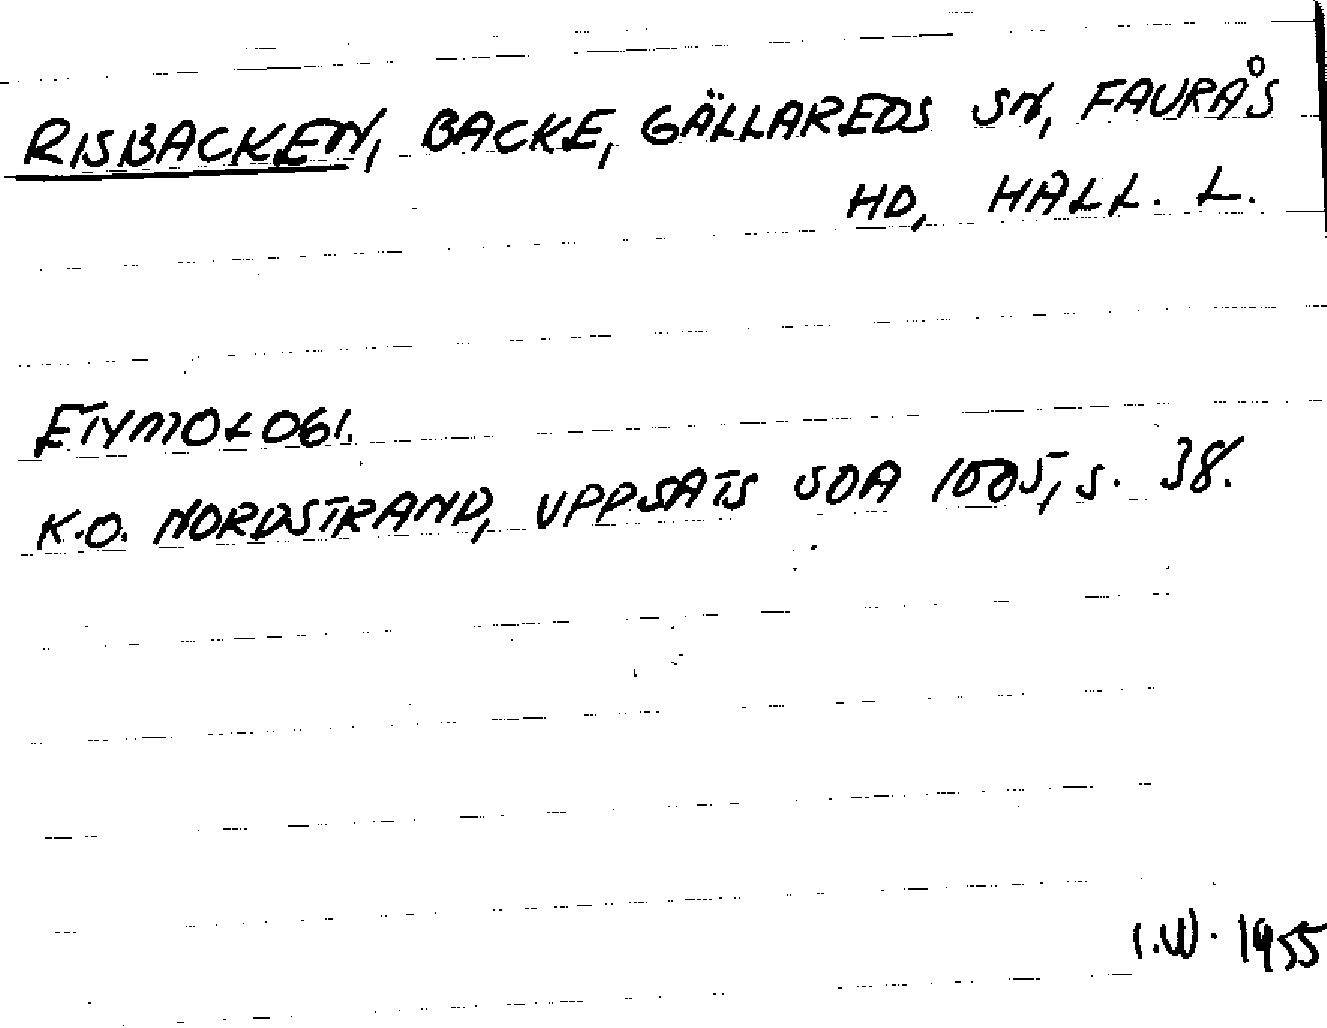 RISBACKEN, BACKE, GÄLLAREDS SN, FAURÅS
HD, HALL. L.
ETYMOLOGI.
K.O. NORDSTRAND, UPPSATS SOA 1005, S. 38.
I.W. 1955